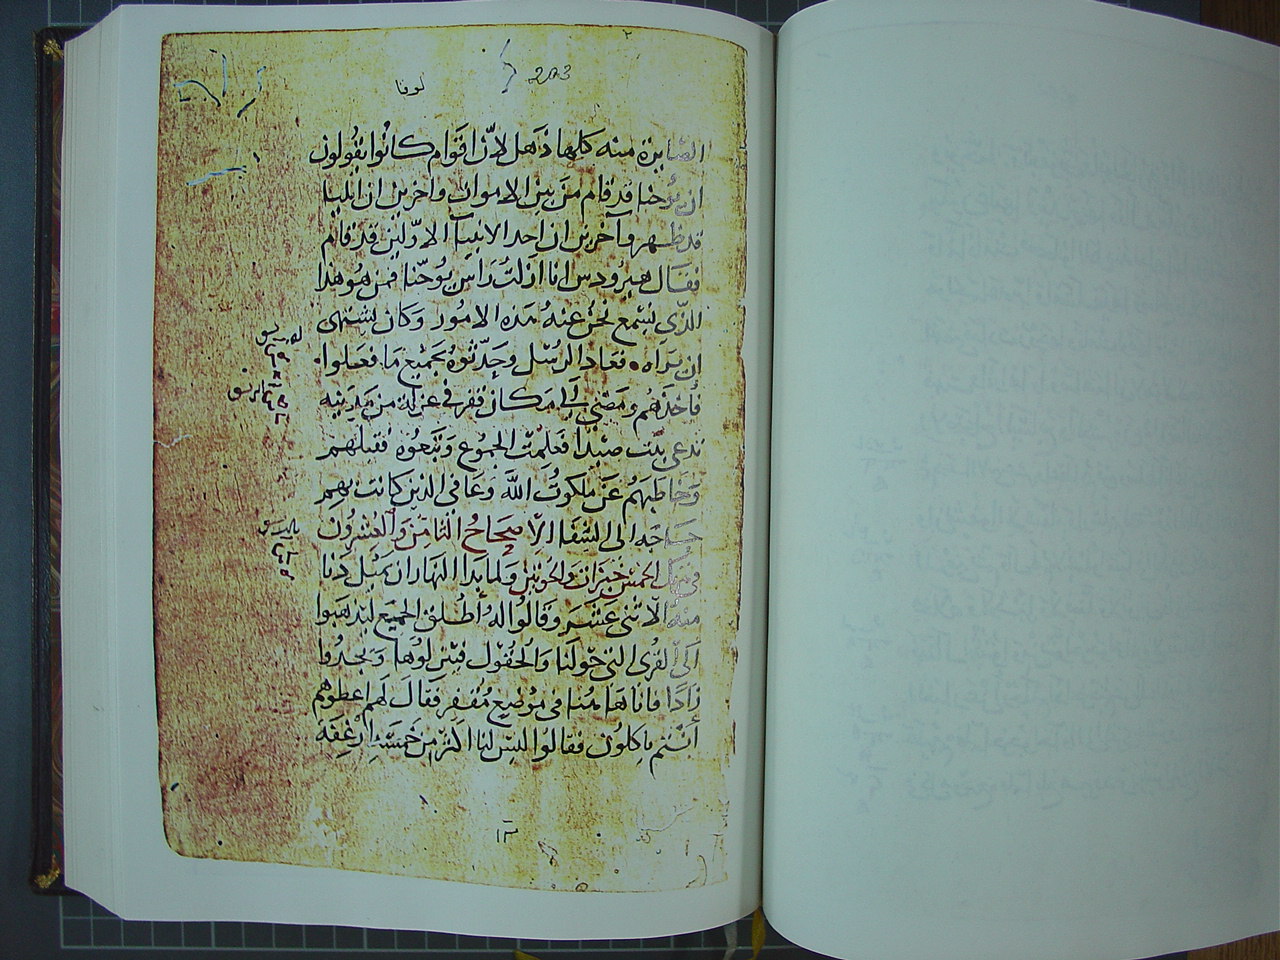 لوقا
203
الصايرة منه كلها ذهل لانّ اقوام كانُوا يقُولون
ان يُوحنا قد قام منَ بين الاموات واخرين ان ايليا
قد ظهر وآخرين ان احد الانبيآ الاوّلين قد قام
فقال هيرودس انا ازلتُ راس يُوحّنا فمن هُو هذا
الذّي نسْمع نحُن عنهُ هَذه الامُور وَكان يشتهى
ان يَراه • فعَاد الرسُل وحَدّثوهُ بجَميْع مَا فعَلوا •
فأخذهُم ومَضى إلَى مَكان قفر في عزلة من مَدينِه
تدعى بيَت صيْدا فعَلمتْ الجمُوع وَتبعُوه فقبلهم
وَخاطبهُم عَنْ مَلكوتُ اللَّه وَعَافى الذين كانت بهم
حَاجَه الى الشِفَا الاِصحَاحُ الثامِن وَالعُشرُون
في الخمس خبزَات وَالحُوتين وَلما بدا النهار ان يَميْل دنا
منهُ الاثنى عَشَر وَقالوا لهُ أُطلق الجميَع ليَذهَبوا
الىَ القُرى التى حوْلنا وَالحُقوُل فيَنزلوُها وَيجدُوا
زَادًا فاننا هَاهُنا فى موُضع مُقفِر فَقالَ لهم اعطوهم
أنْتم ياكلُون فقالوُا ليسَ لنا اكثر من خَمسَة ارْغفَة
١٣